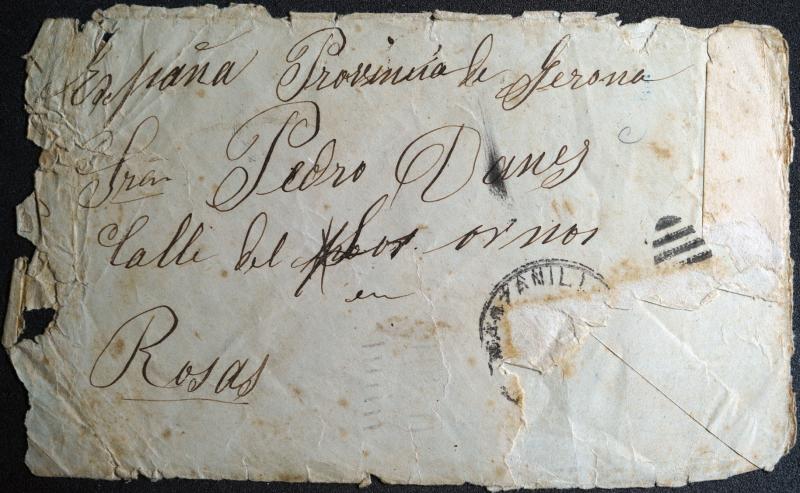 España Provincia de Gerona
Srn Pedro Danes
Calle del ornos
en
Rosas
MANZANILL